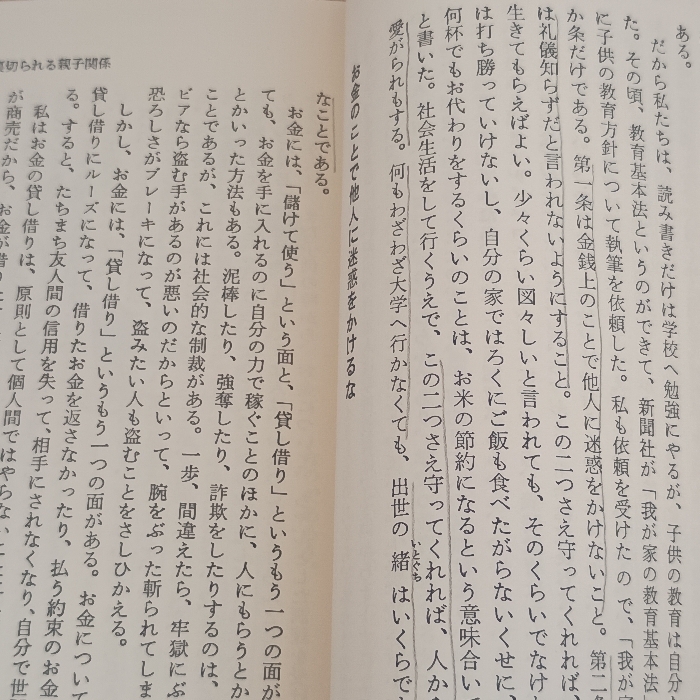 ある。
だから私たちは、読み書きだけは学校へ勉強にやるが、子供の教育は自分
た。その頃、教育基本法というのができて、新聞社が「我が家の教育基本法
に子供の教育方針について執筆を依頼した。私も依頼を受けたので、「我が家
か条だけである。第一条は金銭上のことで他人に迷惑をかけないこと。第二
は礼儀知らずだと言われないようにすること。この二つさえ守ってくれれば、
生きてもらえばよい。少々くらい図々しいと言われても、そのくらいでなけ
は打ち勝っていけないし、自分の家ではろくにご飯も食べたがらないくせに
何杯でもお代わりをするくらいのことは、お米の節約になるという意味合い
と書いた。社会生活をして行くうえで、この二つさえ守ってくれれば、人か
愛がられもする。何もわざわざ大学へ行かなくても、出世の緒はいくらで
いとぐち
お金のことで他人に迷惑をかけるな
切られる親子関係
なことである。
お金には、「儲けて使う」という面と、「貸し借り」というもう一つの面が
ても、お金を手に入れるのに自分の力で稼ぐことのほかに、人にもらうとか
とかいった方法もある。泥棒したり、強奪したり、詐欺をしたりするのは、
ことであるが、これには社会的な制裁がある。一歩、間違えたら、牢獄にぶ
ビアなら盗む手があるのが悪いのだからといって、腕をぶった斬られてしま
恐ろしさがブレーキになって、盗みたい人も盗むことをさしひかえる。
しかし、お金には、「貸し借り」というもう一つの面がある。お金について
貸し借りにルーズになって、借りたお金を返さなかったり、払う約束のお金
る。すると、たちまち友人間の信用を失って、相手にされなくなり、自分で世
私はお金の貸し借りは、原則として個人間ではやらない
が商売だから、お金が借り